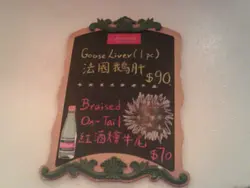 Goose Liver (1pc)
法國鵝肝
$90
Braised
Ox-Tail
紅酒燴牛尾
$70